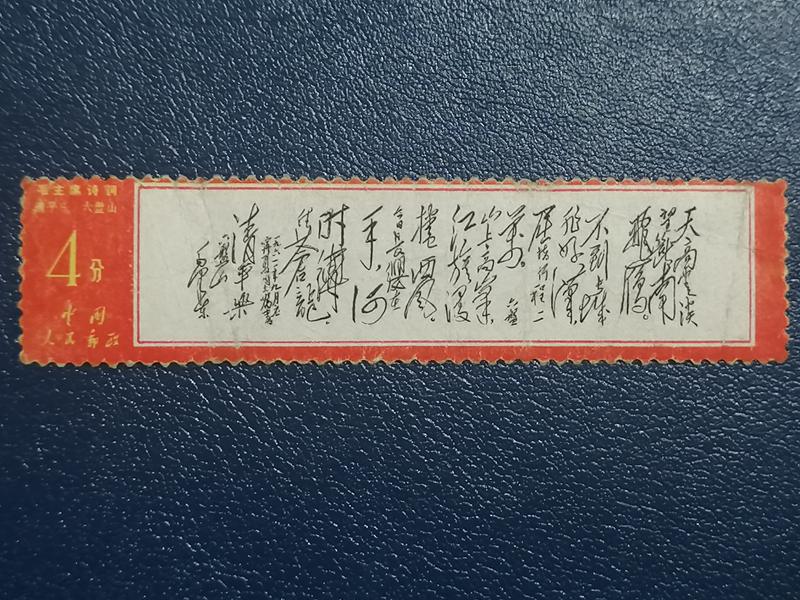 毛主席诗词
清平乐·六盘山
4分
中国
人民邮政
天高云淡
望断南
飞雁。
不到长城
非好汉
屈指行程二
万。六盘
山上高峰,
红旗漫
卷西风。
今日长缨在
手,何
时缚
住苍龙。
清平乐
六盘山
毛泽东